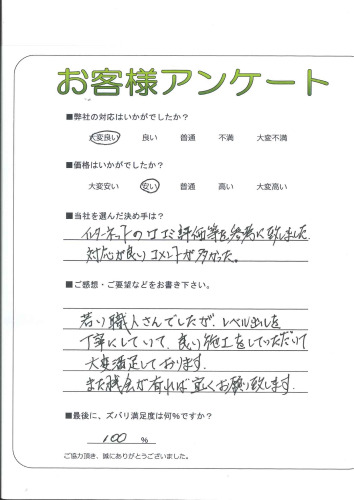 お客様アンケート
■弊社の対応はいかがでしたか?
大変良い 良い 普通 不満 大変不満
■価格はいかがでしたか?
大変安い 安い 普通 高い 大変高い
■当社を選んだ決め手は?
インターネットの口コミ評価等を参考に致しました
対応が良いコメントが多かった。
■ご感想・ご要望などをお書き下さい。
若い職人さんでしたが、レベル出しを
丁寧にしていて、良い施工をしていただいて
大変満足しております。
また機会が有れば宜しくお願い致します.
■最後に、ズバリ満足度は何%ですか?
100 %
ご協力頂き、誠にありがとうございました。